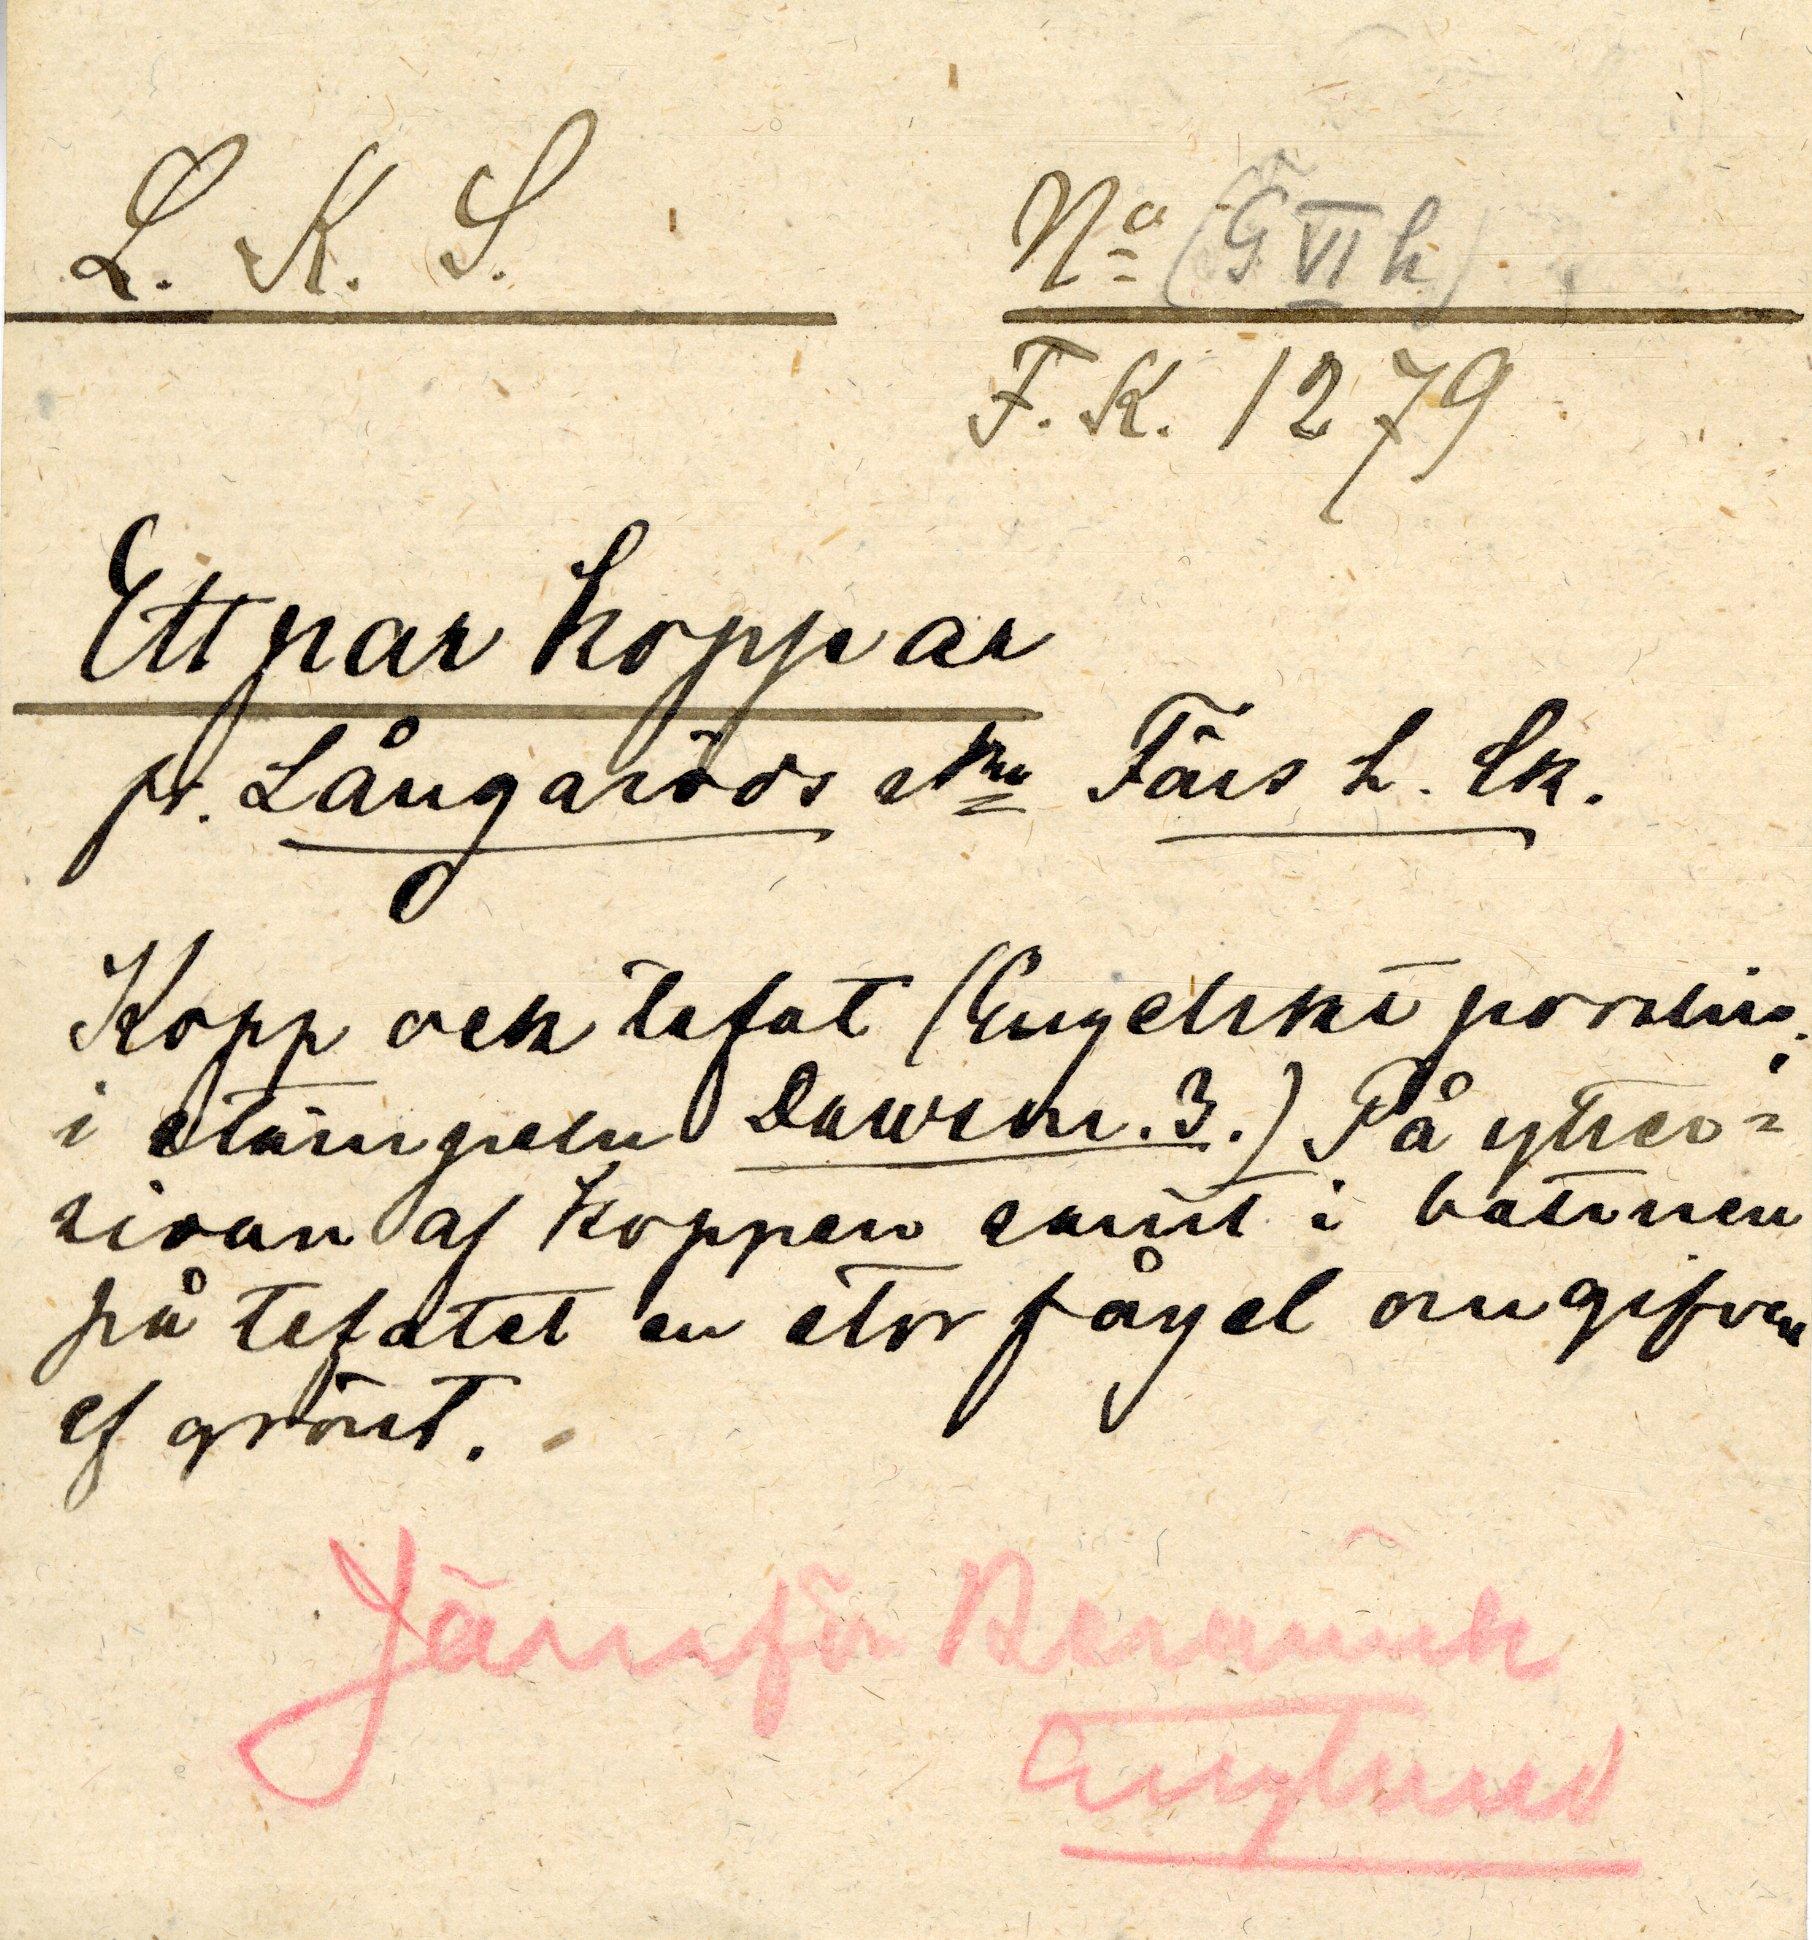 L. K. S.
No (G VI h)
F. K. 1279
Ett par koppar
fr. Långaröds skn Färs h. Sk.
Kopp och tefat (Engelskt porslin;
i stämpeln Dawson. 3.) På yttre=
sidan af koppen samt i bottnen
på tefatet en stor fågel omgifven
af grönt.
Jämför Keramik
England